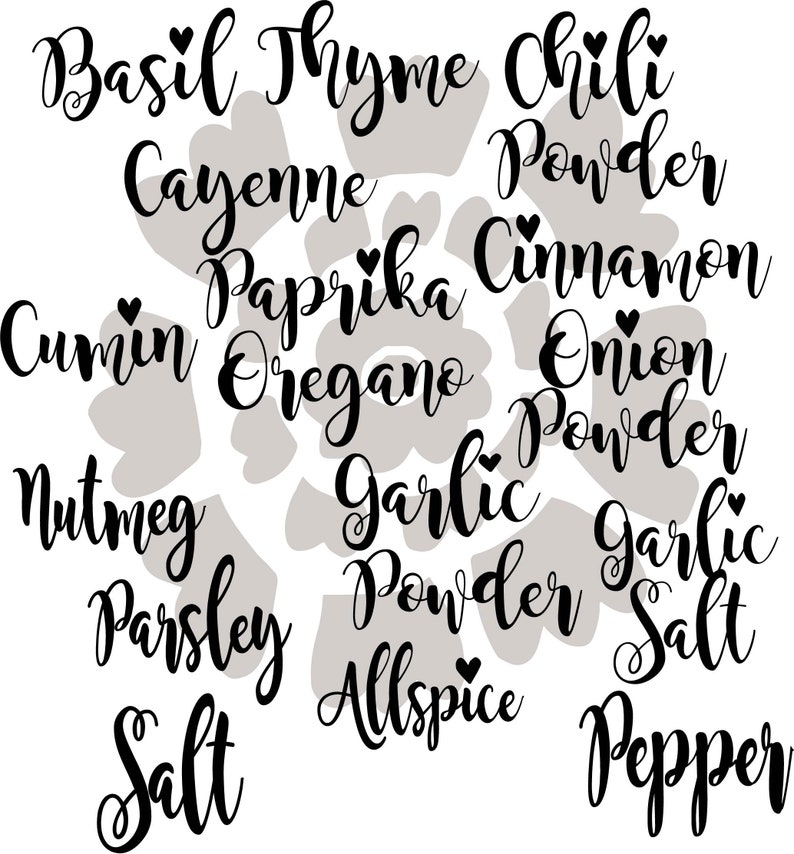 Basil Thyme Chili
Powder
Cayenne
Cinnamon
Paprika
Cumin
Oregano
Onion
Powder
Nutmeg
Garlic
Powder
Garlic
Salt
Parsley
Allspice
Salt
Pepper